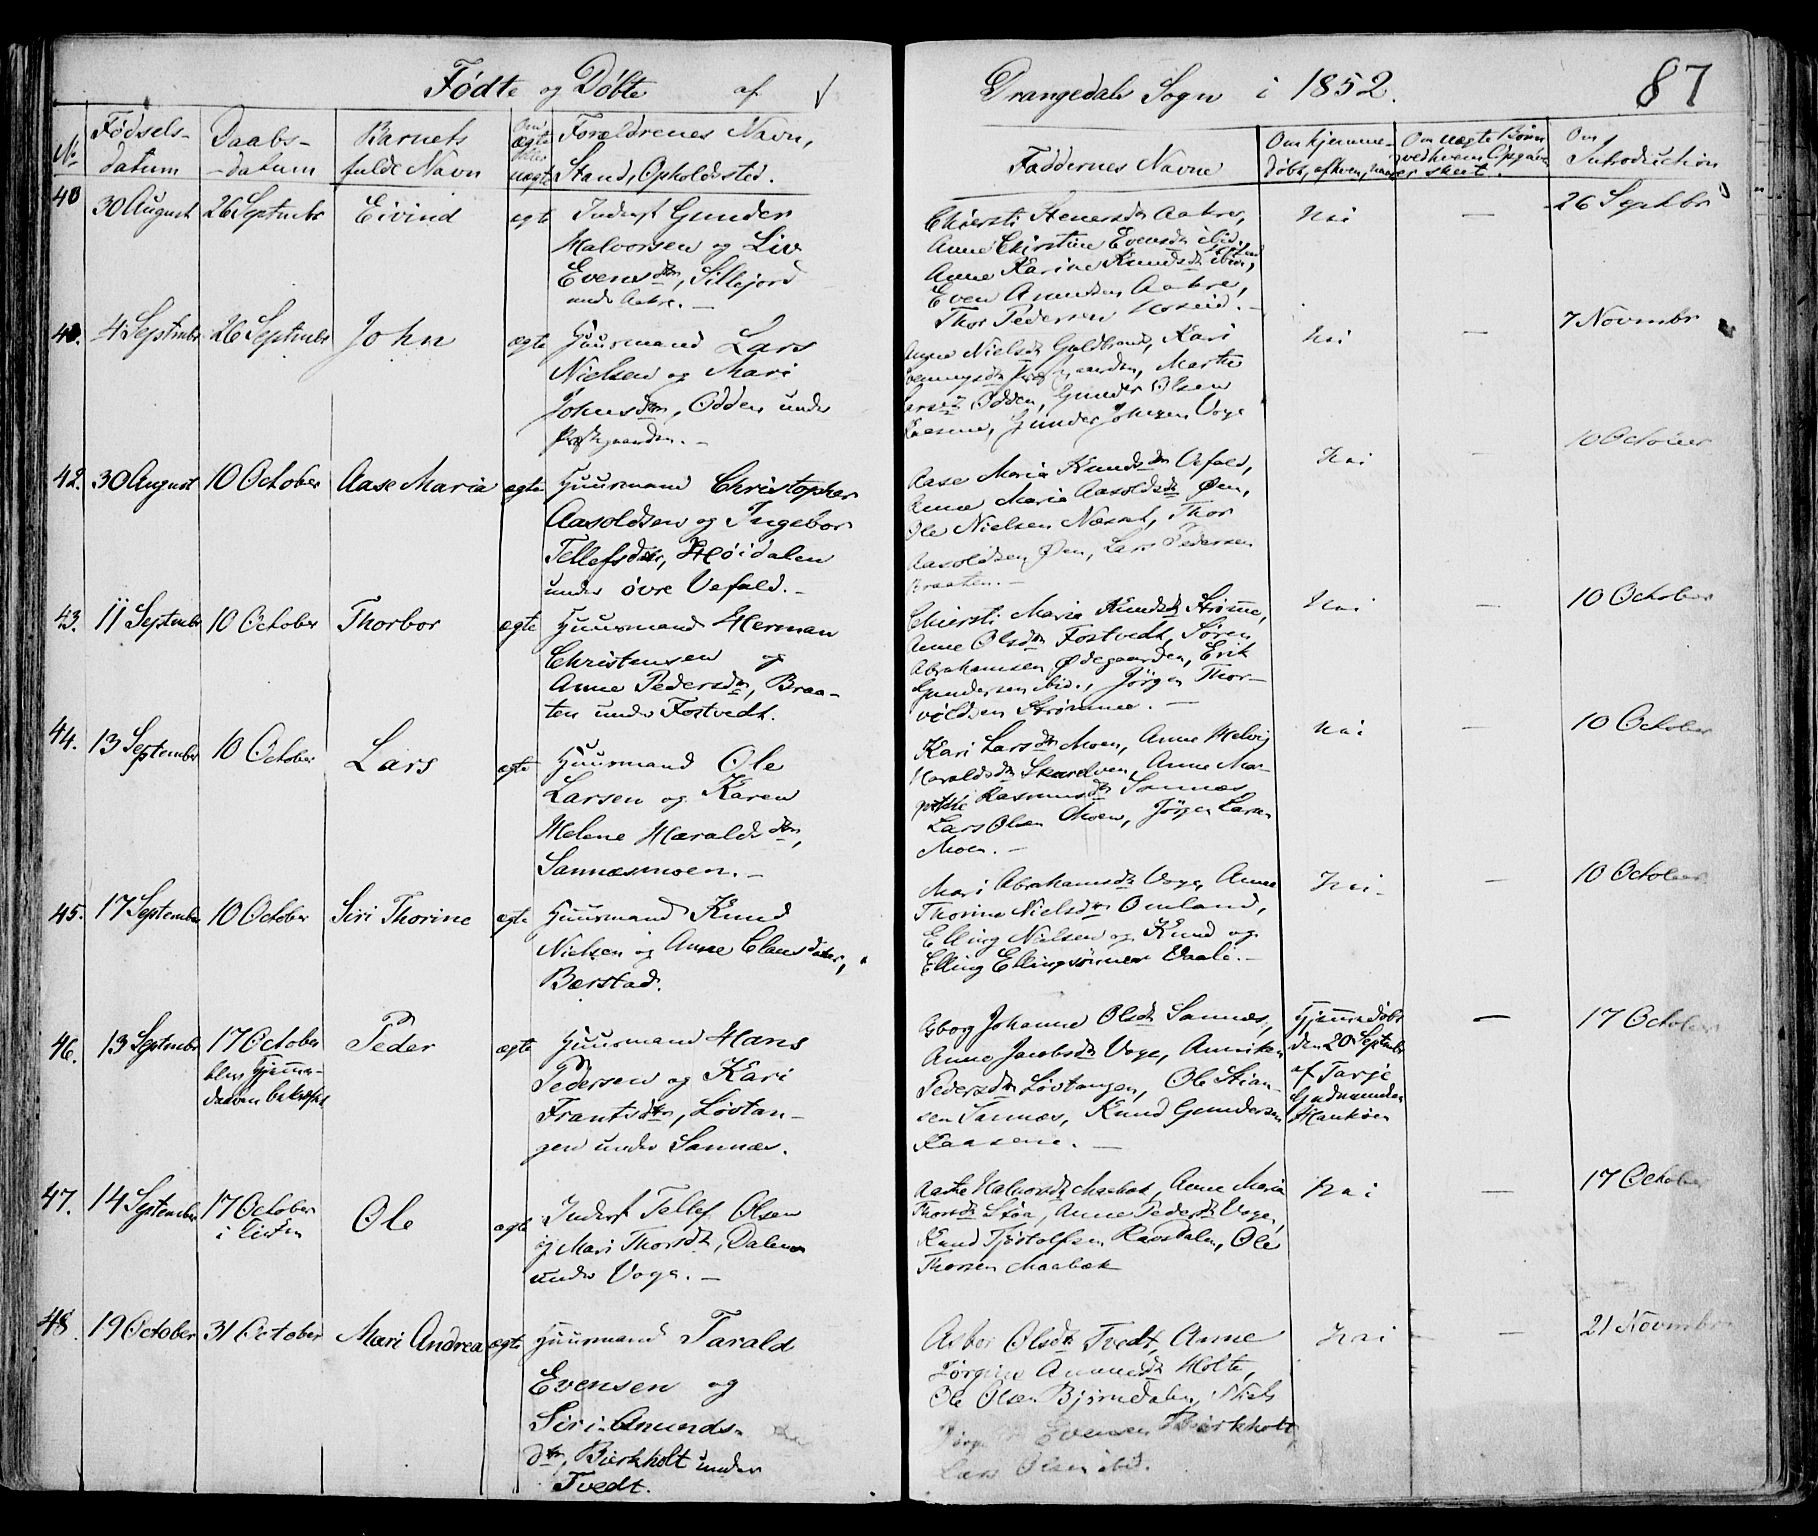 Fødte og Døbte af
Drangedals Sogn i 1852.
87
No
Fødsels-
datum
Daabs-
-datum
Barnets
fulde Navn
Om
ægte
eller
uægte
Forældrenes Navn,
Stand, Opholdssted.
Faddernes Navne
Om hjemme-
døbt, af hvem, naar
Om uægte Børn
ved hvem Opgave
er skeet.
Om
Introduction
40
30 August
26 Septembr
Eivind
ægte
Inderst Gunder
Halvorsen og Liv
Evensdtr, Sillejord
under Aakre. -
Chiersti Stenersdtr Aakre,
Anne Chirstine Evensdtr ibid.
Anne Karine Knudsdtr
Even Amundsen Aakre,
Thor Pedersen
Nei
-
26 Septbr
4 Septembr
26 Septembr
John
ægte
Huusmand Lars
Nielsen og Mari
Johnsdtr, Odden under
Præstegaarden. -
Anne Nielsdtr Guldbrand, Kari
Præstgaarden, Marthe
Larsdtr Odden, Gunder Olsen
Kaasene, Gunder Johnsen Voge
Nei
-
7 Novembr
42.
30 August
10 October
Aase Maria
ægte
Huusmand Christopher
Aasoldsen og Ingebor
Tellefsdtr, Høidalen
under øvre Vefald. -
Aase Maria Knudsdtr Vefald,
Anne Maria Aasoldsdtr Øen,
Ole Nielsen Næset, Thor
Aasoldsen Øen, Lars Pedersen
Braaten. -
Nei
-
10 October
43.
11 Septembr
10 October
Thorbor
ægte
Huusmand Herman
Christensen og
Anne Pedersdtr, Braa-
ten under Fostvedt.
Chiersti Maria Knudsdtr Strømme,
Anne Olsdtr Fostvedt, Søren
Abrahamsen Ødegaarden, Erik
Gundersen ibid., Jørgen Thor-
voldsen Strømme. -
Nei
-
10 October
44.
13 September
10 October
Lars
ægte
Huusmand Ole
Larsen og Karen
Helene Haraldsdtr,
Sannæsmoen. -
Kari Larsdtr Moen, Anne Helvig
Haraldsdtr Anne Mar-
grethe Rasmusdtr Sannæs
Lars Olsen Moen, Jørgen Larsen
Moen. -
Nei
-
10 October
45.
17 September
10 October
Siri Thorine
ægte
Huusmand Knud
Nielsen og Anne Clausdatter,
Bærstad.
Mari Abrahamsdtr Voge, Anne
Thorine Nielsdtr Omland,
Elling Nielsen og Knud og
Elling Ellingsønner Vaale. -
Nei -
-
10 October
46.
13 Septembr
17 October
blev Hjemme-
daaben bekræftet
Peder
ægte
Huusmand Hans
Pedersen og Kari
Frantsdtr, Løvtan-
gen under Sannæs.
Asborg Johanne Olsdtr Sannæs,
Anne Jacobsdtr Voge, Anniken
Pedersdtr Løvtangen, Ole Stian-
sen Sannæs, Knud Gundersen
Kaasene. -
Hjemmedøbt
den 20 Septembr
af Tarje
Gudmundsen
-
17 October
47.
14 September
17 October
Ole
ægte
Inderst Tellef Olsen
og Mari Thorsdtr, Dalen
under Voge. -
Aaste Halvorsdtr Maabæk, Anne Maria
Thorsdtr Støa, Anne Pedersdtr Voge,
Knud Tjøstolfsen Ravsdalen, Ole
Thorsen Maabæk
Nei
-
17 October
48.
19 October
31 October
Mari Andrea
ægte
Huusmand Tarald
Evensen og
Siri Amunds-
dtr, Bierkholt under
Tvedt.
Asbor Olsdtr Tvedt, Anne
Jørgine Amundsdtr Holte,
Ole Olsen Bjørndalen, Niels
Evensen Bierkholt,
Lars Olsen ibid.
Nei
-
21 Novmbr